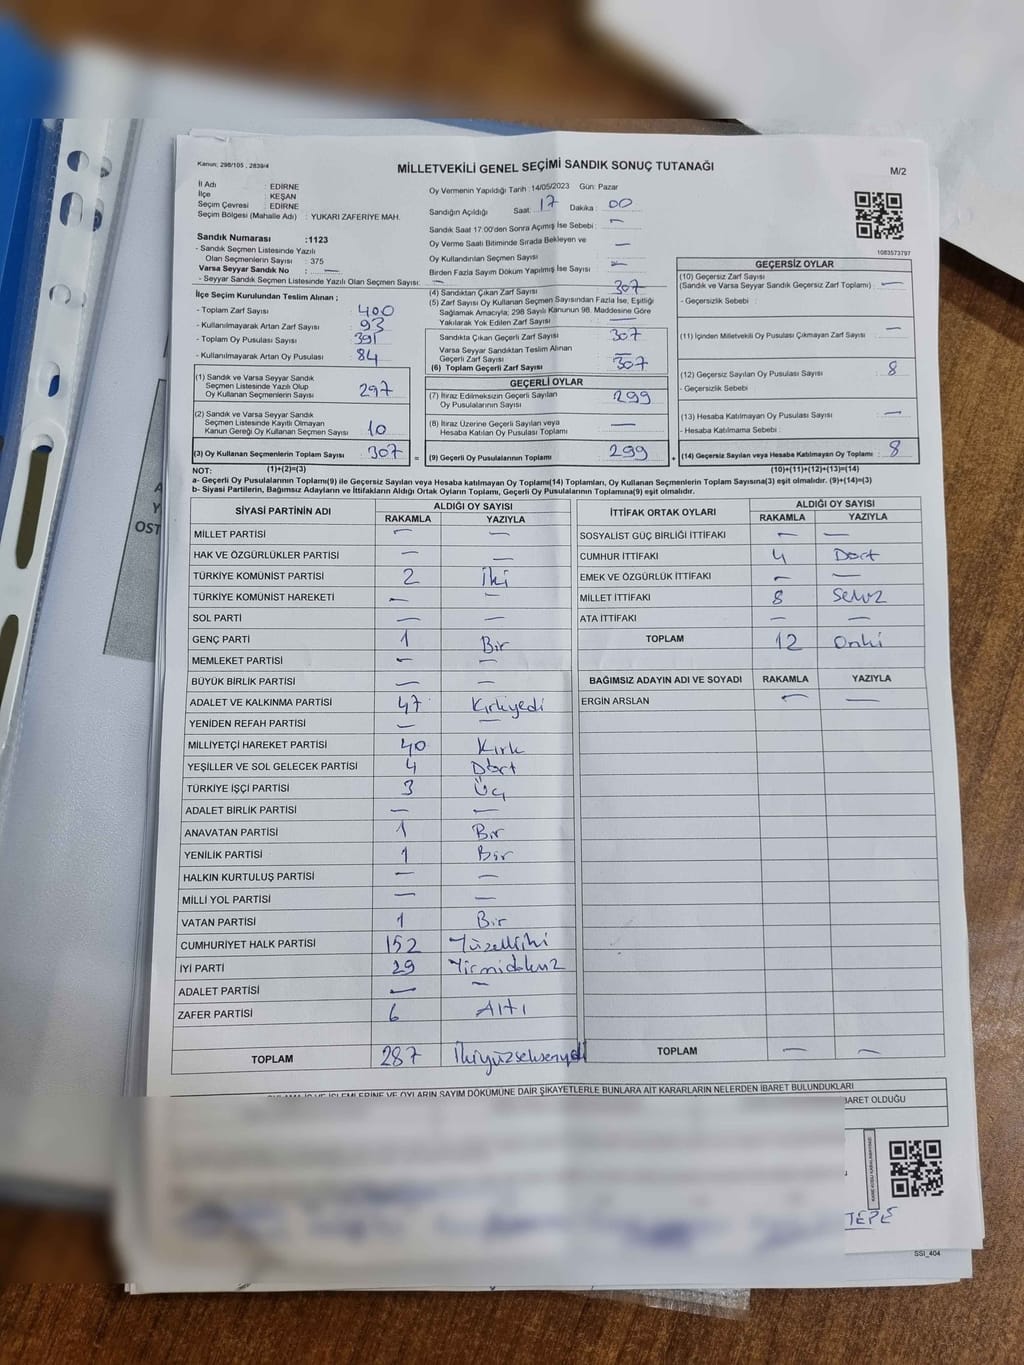 Kanun: 298/105 , 2839/4
MİLLETVEKİLİ GENEL SEÇİMİ SANDIK SONUÇ TUTANAĞI
M/2
İl Adı : EDİRNE
İlçe : KEŞAN
Seçim Çevresi : EDİRNE
Seçim Bölgesi (Mahalle Adı) : YUKARI ZAFERİYE MAH.
Oy Vermenin Yapıldığı Tarih : 14/05/2023 Gün: Pazar
Sandığın Açıldığı Saat : 17 Dakika : 00
Sandık Saat 17:00'den Sonra Açımış İse Sebebi : —
Oy Verme Saati Bitiminde Sırada Bekleyen ve
Oy Kullandırılan Seçmen Sayısı —
Birden Fazla Sayım Döküm Yapılmış İse Sayısı —
1083573797
Sandık Numarası :1123
- Sandık Seçmen Listesinde Yazılı
Olan Seçmenlerin Sayısı : 375
Varsa Seyyar Sandık No : —
- Seyyar Sandık Seçmen Listesinde Yazılı Olan Seçmen Sayısı: —
İlçe Seçim Kurulundan Teslim Alınan ;
- Toplam Zarf Sayısı : 400
- Kullanılmayarak Artan Zarf Sayısı : 93
- Toplam Oy Pusulası Sayısı : 391
- Kullanılmayarak Artan Oy Pusulası : 84
(1) Sandık ve Varsa Seyyar Sandık
Seçmen Listesinde Yazılı Olup
Oy Kullanan Seçmenlerin Sayısı : 297
(2) Sandık ve Varsa Seyyar Sandık
Seçmen Listesinde Kayıtlı Olmayan
Kanun Gereği Oy Kullanan Seçmen Sayısı : 10
(3) Oy Kullanan Seçmenlerin Toplam Sayısı : 307 =
(4) Sandıktan Çıkan Zarf Sayısı : 307
(5) Zarf Sayısı Oy Kullanan Seçmen Sayısından Fazla İse, Eşitliği
Sağlamak Amacıyla; 298 Sayılı Kanunun 98. Maddesine Göre
Yakılarak Yok Edilen Zarf Sayısı : —
Sandıkta Çıkan Geçerli Zarf Sayısı : 307
Varsa Seyyar Sandıktan Teslim Alınan
Geçerli Zarf Sayısı : —
(6) Toplam Geçerli Zarf Sayısı : 307
GEÇERLİ OYLAR
(7) İtiraz Edilmeksizin Geçerli Sayılan
Oy Pusulalarının Sayısı : 299
(8) İtiraz Üzerine Geçerli Sayılan veya
Hesaba Katılan Oy Pusulası Toplamı : —
(9) Geçerli Oy Pusulalarının Toplamı : 299 +
GEÇERSİZ OYLAR
(10) Geçersiz Zarf Sayısı
(Sandık ve Varsa Seyyar Sandık Geçersiz Zarf Toplamı) : —
- Geçersizlik Sebebi :
(11) İçinden Milletvekili Oy Pusulası Çıkmayan Zarf Sayısı : —
(12) Geçersiz Sayılan Oy Pusulası Sayısı : 8
- Geçersizlik Sebebi :
(13) Hesaba Katılmayan Oy Pusulası Sayısı : —
- Hesaba Katılmama Sebebi :
(14) Geçersiz Sayılan veya Hesaba Katılmayan Oy Toplamı : 8
NOT: (1)+(2)=(3) (10)+(11)+(12)+(13)=(14)
a- Geçerli Oy Pusulalarının Toplamı(9) ile Geçersiz Sayılan veya Hesaba Katılmayan Oy Toplamı(14) Toplamları, Oy Kullanan Seçmenlerin Toplam Sayısına(3) eşit olmalıdır. (9)+(14)=(3)
b- Siyasi Partilerin, Bağımsız Adayların ve İttifakların Aldığı Ortak Oyların Toplamı, Geçerli Oy Pusulalarının Toplamına(9) eşit olmalıdır.
SİYASİ PARTİNİN ADI ALDIĞI OY SAYISI
RAKAMLA YAZIYLA
MİLLET PARTİSİ — —
HAK VE ÖZGÜRLÜKLER PARTİSİ — —
TÜRKİYE KOMÜNİST PARTİSİ 2 İki
TÜRKİYE KOMÜNİST HAREKETİ — —
SOL PARTİ — —
GENÇ PARTİ 1 Bir
MEMLEKET PARTİSİ — —
BÜYÜK BİRLİK PARTİSİ — —
ADALET VE KALKINMA PARTİSİ 47 Kırkyedi
YENİDEN REFAH PARTİSİ — —
MİLLİYETÇİ HAREKET PARTİSİ 40 Kırk
YEŞİLLER VE SOL GELECEK PARTİSİ 4 Dört
TÜRKİYE İŞÇİ PARTİSİ 3 Üç
ADALET BİRLİK PARTİSİ — —
ANAVATAN PARTİSİ 1 Bir
YENİLİK PARTİSİ 1 Bir
HALKIN KURTULUŞ PARTİSİ — —
MİLLİ YOL PARTİSİ — —
VATAN PARTİSİ 1 Bir
CUMHURİYET HALK PARTİSİ 152 Yüzelliiki
İYİ PARTİ 29 Yirmidokuz
ADALET PARTİSİ — —
ZAFER PARTİSİ 6 Altı
TOPLAM 287 İkiyüzseksenyedi
İTTİFAK ORTAK OYLARI ALDIĞI OY SAYISI
RAKAMLA YAZIYLA
SOSYALİST GÜÇ BİRLİĞİ İTTİFAKI — —
CUMHUR İTTİFAKI 4 Dört
EMEK VE ÖZGÜRLÜK İTTİFAKI — —
MİLLET İTTİFAKI 8 Sekiz
ATA İTTİFAKI — —
TOPLAM 12 Oniki
BAĞIMSIZ ADAYIN ADI VE SOYADI RAKAMLA YAZIYLA
ERGİN ARSLAN — —
TOPLAM — —
OYLARIN SAYIM DÖKÜMÜNE DAİR ŞİKAYETLERLE BUNLARA AİT KARARLARIN NELERDEN İBARET BULUNDUKLARI
İBARET OLDUĞU
TEPE
SSI_404